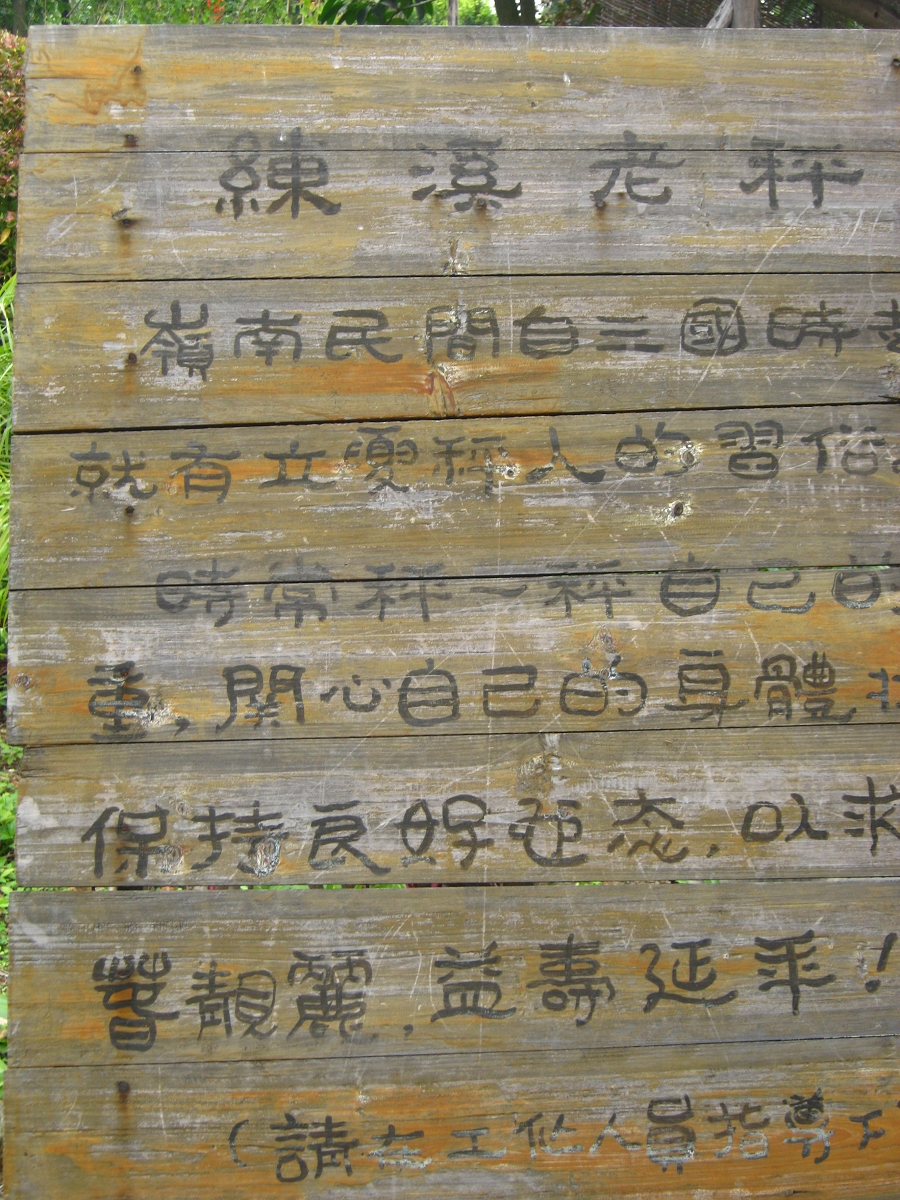 練溪老秤
嶺南民間自三國時
就有立夏秤人的習俗
時常秤一秤自己的
重,關心自己的身體
保持良好态,以求
春靚麗,益壽延年!
(請在工作人員指導下